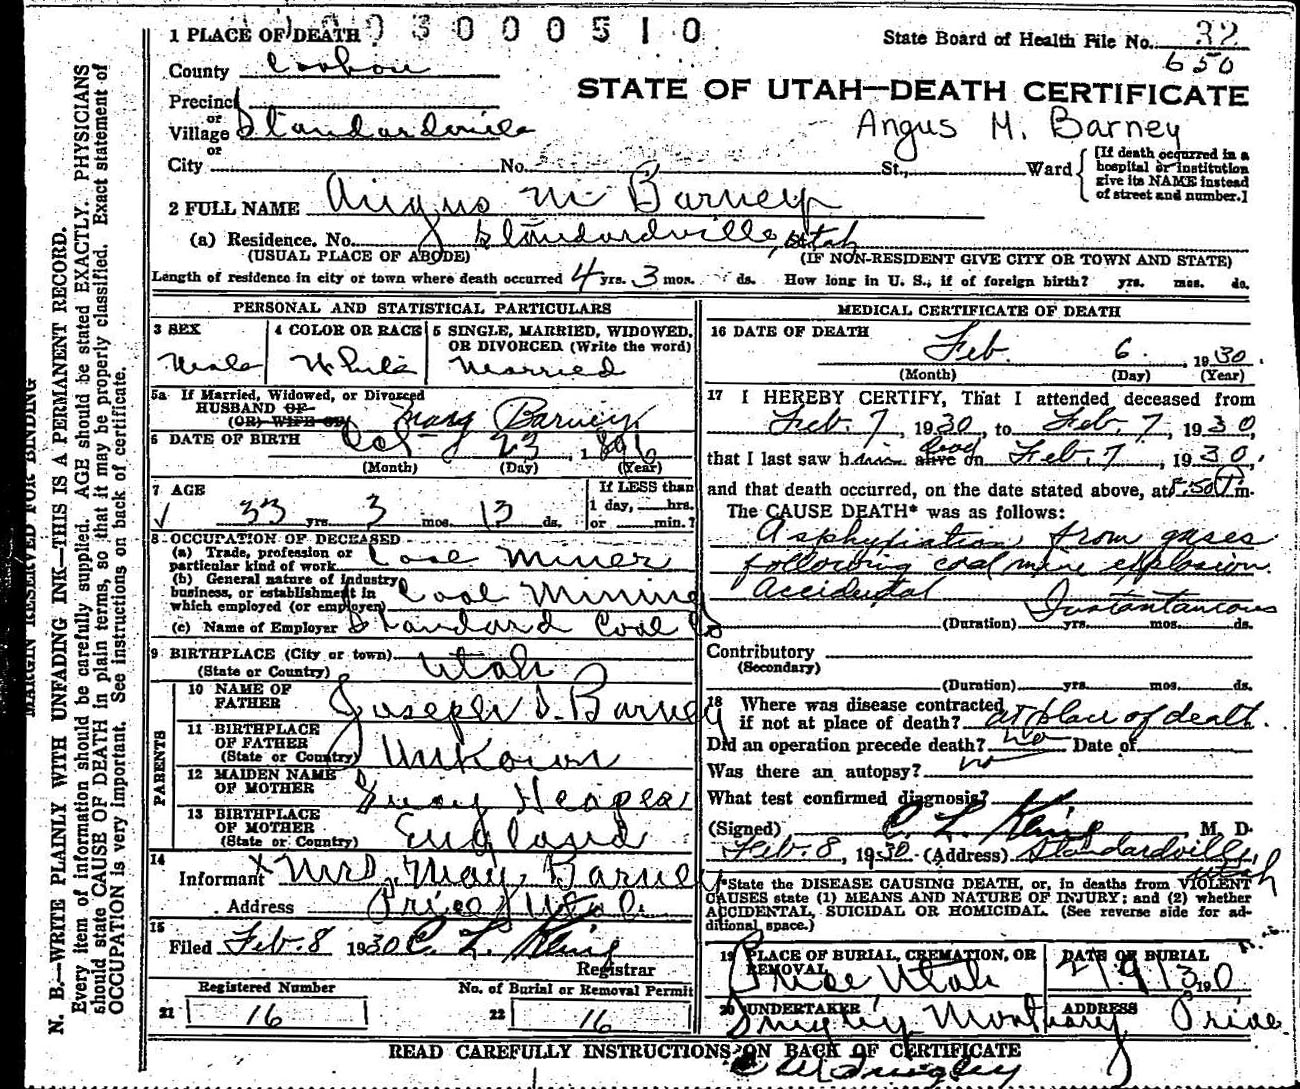 1 PLACE OF DEATH 0 3 0 0 0 5 1 0
State Board of Health File No. 32
650
County Carbon
STATE OF UTAH—DEATH CERTIFICATE
Precinct
or
Village Standardville
Angus M. Barney
or
City No. St., Ward
[If death occurred in a hospital or institution give its NAME instead of street and number.]
2 FULL NAME Angus M Barney
(a) Residence. No. Standardville, Utah
(USUAL PLACE OF ABODE) (IF NON-RESIDENT GIVE CITY OR TOWN AND STATE)
Length of residence in city or town where death occurred 4 yrs. 3 mos. ds. How long in U. S., if of foreign birth? yrs. mos. ds.
PERSONAL AND STATISTICAL PARTICULARS
3 SEX
Male
4 COLOR OR RACE
White
5 SINGLE, MARRIED, WIDOWED, OR DIVORCED (Write the word)
Married
5a If Married, Widowed, or Divorced
HUSBAND OF
(OR) WIFE OF
Mary Barney
6 DATE OF BIRTH Oct 23, 1896
(Month) (Day) (Year)
7 AGE
33 yrs. 3 mos. 13 ds.
If LESS than
1 day, hrs.
or min.?
8 OCCUPATION OF DECEASED
(a) Trade, profession or
particular kind of work Coal Miner
(b) General nature of industry
business, or establishment in
which employed (or employer) Coal Mining
(c) Name of Employer Standard Coal Co
9 BIRTHPLACE (City or town)
(State or Country) Utah
PARENTS
10 NAME OF
FATHER Joseph S. Barney
11 BIRTHPLACE
OF FATHER
(State or Country) Unkown
12 MAIDEN NAME
OF MOTHER
13 BIRTHPLACE
OF MOTHER
(State or Country) England
14
Informant x Mrs. May Barney
Address Price Utah
15
Filed Feb. 8 1930 C. L. Kling
Registrar
Registered Number
21 16
No. of Burial or Removal Permit
22 16
MEDICAL CERTIFICATE OF DEATH
16 DATE OF DEATH
Feb. 6, 1930.
(Month) (Day) (Year)
17 I HEREBY CERTIFY, That I attended deceased from
Feb. 7, 1930, to Feb. 7, 1930,
that I last saw him alive dead on Feb. 7, 1930,
and that death occurred, on the date stated above, at m.
The CAUSE DEATH* was as follows:
Asphyxiation from gases
following coal mine explosion.
Accidental Instantaneous
(Duration) yrs. mos. ds.
Contributory
(Secondary)
(Duration) yrs. mos. ds.
18 Where was disease contracted
if not at place of death? at place of death.
Did an operation precede death? no Date of
Was there an autopsy? no
What test confirmed diagnosis?
(Signed) C. L. Kling M. D.
Feb. 8, 1930 (Address) Standardville, Utah
*State the DISEASE CAUSING DEATH, or, in deaths from VIOLENT
CAUSES state (1) MEANS AND NATURE OF INJURY; and (2) whether
ACCIDENTAL, SUICIDAL OR HOMICIDAL. (See reverse side for ad-
ditional space.)
19 PLACE OF BURIAL, CREMATION, OR
REMOVAL
Price, Utah
DATE OF BURIAL
2/9/30 19
20 UNDERTAKER
Mortuary
ADDRESS
Price
READ CAREFULLY INSTRUCTIONS ON BACK OF CERTIFICATE
MARGIN RESERVED FOR BINDING
N. B.—WRITE PLAINLY WITH UNFADING INK—THIS IS A PERMANENT RECORD.
Every item of information should be carefully supplied. AGE should be stated EXACTLY. PHYSICIANS
should state CAUSE OF DEATH in plain terms, so that it may be properly classified. Exact statement of
OCCUPATION is very important. See instructions on back of certificate.